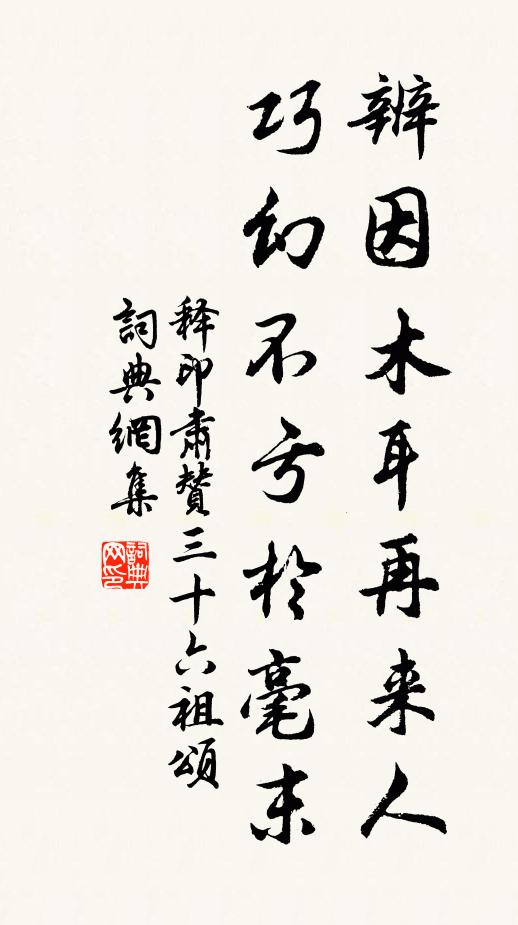 辨因木耳再来人
巧幻不亏於毫末
释印肃赞三十六祖頌
詞典網集
詞典
网印